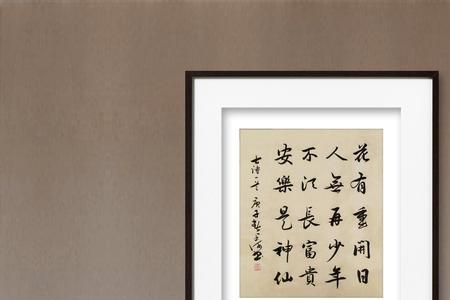 花有重開日
人無再少年
不須長富貴
安樂是神仙
古詩一首 庚子